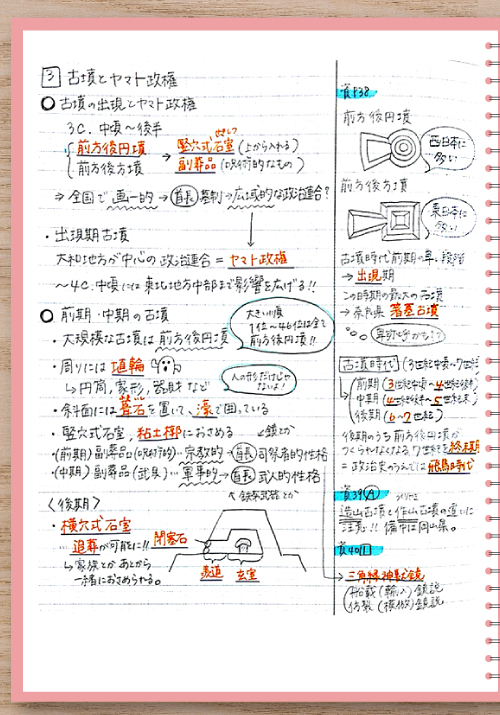 3 古墳とヤマト政権
○古墳の出現とヤマト政権
3C. 中頃～後半
前方後円墳 → 竪穴式石室(上から入れる)
前方後方墳 副葬品(呪術的なもの)
⇒ 全国で画一的 → 首長墓制 → 広域的な政治連合?
・出現期古墳
大和地方が中心の政治連合 = ヤマト政権
～4C.中頃には東北地方中部まで影響を広げる!!
○前期・中期の古墳
・大規模な古墳は前方後円墳
大きい順
1位～46位は全て
前方後円墳!!
・周りには埴輪
↳円筒,家形,器財など
人の形だけじゃ
ないよ!
・斜面には葺石を置いて、濠で囲っている
・竪穴式石室,粘土槨におさめる
↙鏡とか
・(前期)副葬品(呪術的)…宗教的→首長 司祭者的性格
・(中期)副葬品(武具)…軍事的→首長 武人的性格
↖鉄製武器とか
〈後期〉
・横穴式石室
追葬が可能に!!
↳家族とかあとから
一緒におさめられる。
閉塞石
羨道 玄室
資P38
前方後円墳
西日本に
多い
前方後方墳
東日本に
多い
古墳時代前期の早い段階
→出現期
この時期の最大の古墳
→奈良県 箸墓古墳
卑弥呼かも!?
古墳時代(3世紀中頃～7世紀)
前期(3世紀中頃～4世紀後半)
中期(4世紀後半～5世紀末)
後期(6～7世紀)
後期のうち前方後円墳が
つくられなくなる7世紀を終末期
=政治史のうえでは飛鳥時代
資39A
造山古墳と作山古墳の違いに
注意!! 備中は岡山県。
資40 1
→三角縁神獣鏡
(舶載(輸入)鏡説
(仿製(模倣)鏡説